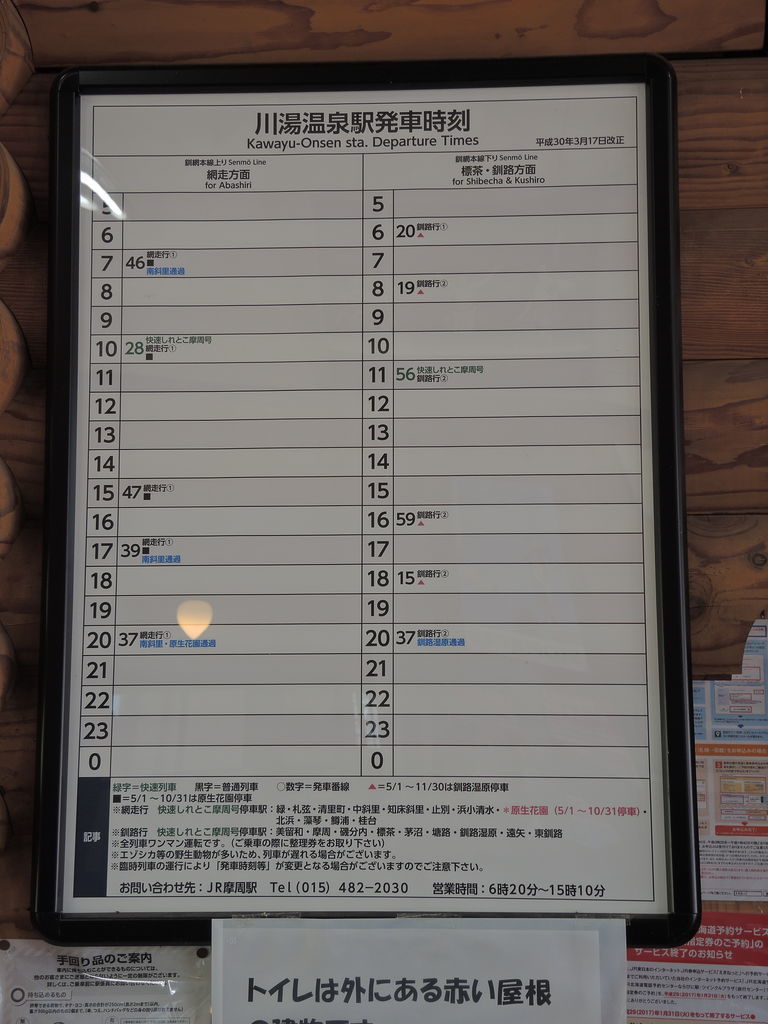 川湯温泉駅発車時刻
Kawayu-Onsen sta. Departure Times
平成30年3月17日改正
釧網本線上り Senmō Line
網走方面
for Abashiri
釧網本線下り Senmō Line
標茶・釧路方面
for Shibecha & Kushiro
5 5
6 6 20 釧路行② ▲
7 46 網走行① ■ 南斜里通過 7
8 8 19 釧路行② ▲
9 9
10 28 快速しれとこ摩周号 網走行① ■ 10
11 11 56 快速しれとこ摩周号 釧路行②
12 12
13 13
14 14
15 47 網走行① ■ 15
16 16 59 釧路行② ▲
17 39 網走行① ■ 南斜里通過 17
18 18 15 釧路行② ▲
19 19
20 37 網走行① 南斜里・原生花園通過 20 37 釧路行② 釧路湿原通過
21 21
22 22
23 23
0 0
記事
緑字=快速列車 黒字=普通列車 ○数字=発車番線 ▲=5/1~11/30は釧路湿原停車
■=5/1~10/31は原生花園停車
※網走行 快速しれとこ摩周号停車駅:緑・札弦・清里町・中斜里・知床斜里・止別・浜小清水・*原生花園(5/1~10/31停車)・
北浜・藻琴・鱒浦・桂台
※釧路行 快速しれとこ摩周号停車駅:美留和・摩周・磯分内・標茶・茅沼・塘路・釧路湿原・遠矢・東釧路
※全列車ワンマン運転です。(ご乗車の際に整理券をお取り下さい)
※エゾシカ等の野生動物が多いため、列車が遅れる場合がございます。
※臨時列車の運行により「発車時刻等」が変更となる場合がございますのでご注意下さい。
お問い合わせ先:JR摩周駅 Tel(015) 482-2030 営業時間:6時20分~15時10分
手回り品のご案内
車内に持ち込むことができるものについては、
トイレは外にある赤い屋根
海道予約サービス
指定券のご予約」の
サービス終了のお知らせ